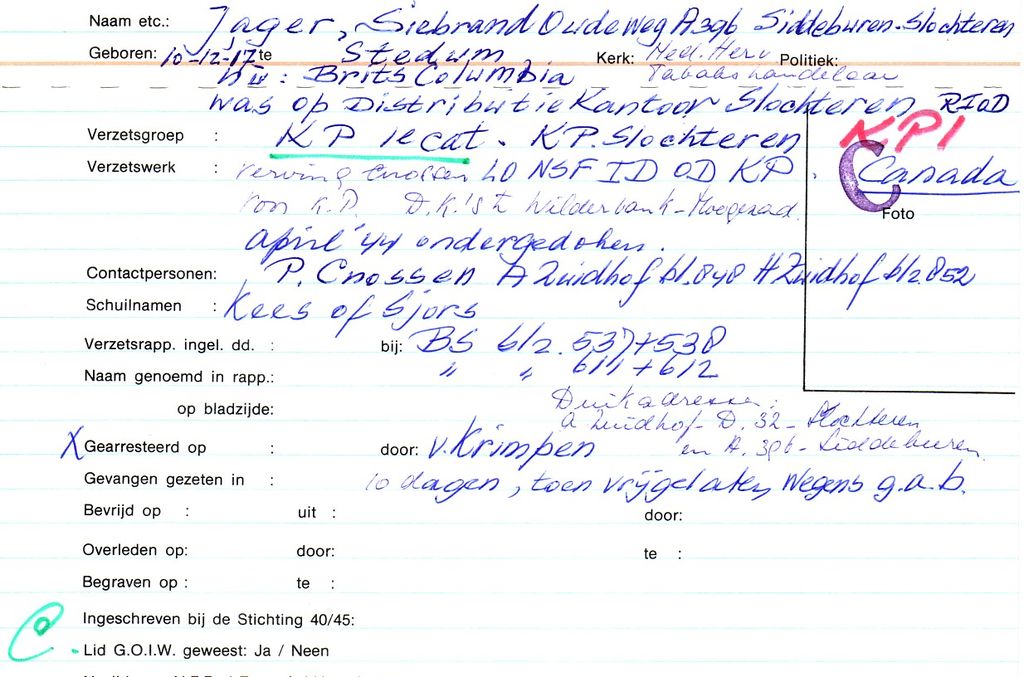 Naam etc.: Jager, Siebrand Oudeweg A396 Siddeburen-Slochteren
Geboren: 10-12-'17 te Stedum Kerk: Ned. Herv Politiek:
nu: Brits Columbia Tabakshandelaar
was op Distributie Kantoor Slochteren RIOD
KP1
Verzetsgroep : KP 1e cat. KP. Slochteren
C Canada
Verzetswerk : Cnossen LO NSF ID OD KP.
v/on K.P. D.K.'s t Wilderbank-
Foto
April '44 ondergedoken.
Contactpersonen: P. Cnossen A Zuidhof blz. 848 H Zuidhof blz. 852
Schuilnamen : Kees of Sjors
Verzetsrapp. ingel. dd. : bij: BS blz. 537+538
Naam genoemd in rapp.: " " 611+612
Duikadressen:
op bladzijde: a Zuidhof-D. 32-Slochteren
X Gearresteerd op : door: v. Krimpen en A. 396-Siddeburen.
Gevangen gezeten in : 10 dagen, toen vrijgelaten, wegens g.a.b.
Bevrijd op : uit : door:
Overleden op: door: te :
Begraven op : te :
Ingeschreven bij de Stichting 40/45:
Lid G.O.I.W. geweest: Ja / Neen